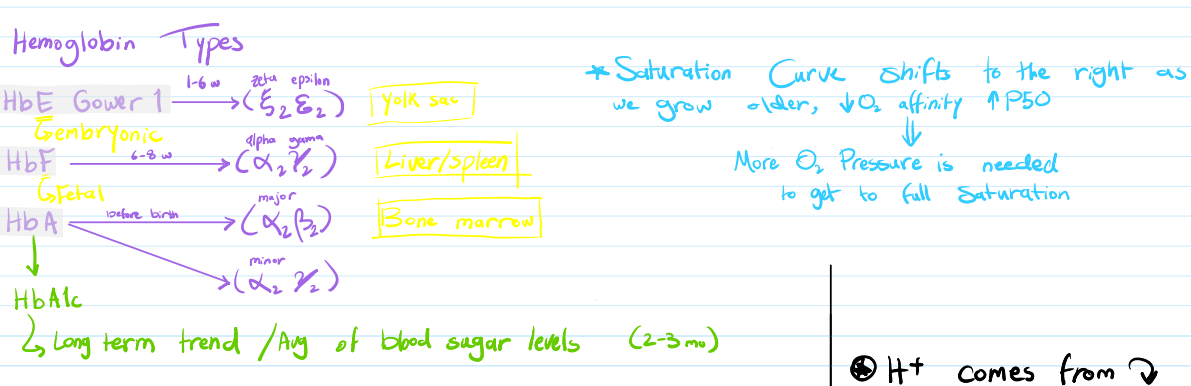 Hemoglobin Types
HbE Gower 1 1-6 w zeta epsilon (ξ₂ ε₂) Yolk sac
↳embryonic
HbF 6-8 w alpha gama (α₂ γ₂) Liver/spleen
↳Fetal
HbA before birth major (α₂ β₂) Bone marrow
minor (α₂ γ₂)
HbA1c
↳ Long term trend / Avg of blood sugar levels (2-3 mo)
* Saturation Curve shifts to the right as
we grow older, ↓O₂ affinity ↑P50
↓
More O₂ Pressure is needed
to get to full Saturation
⍟ H+ comes from ↷